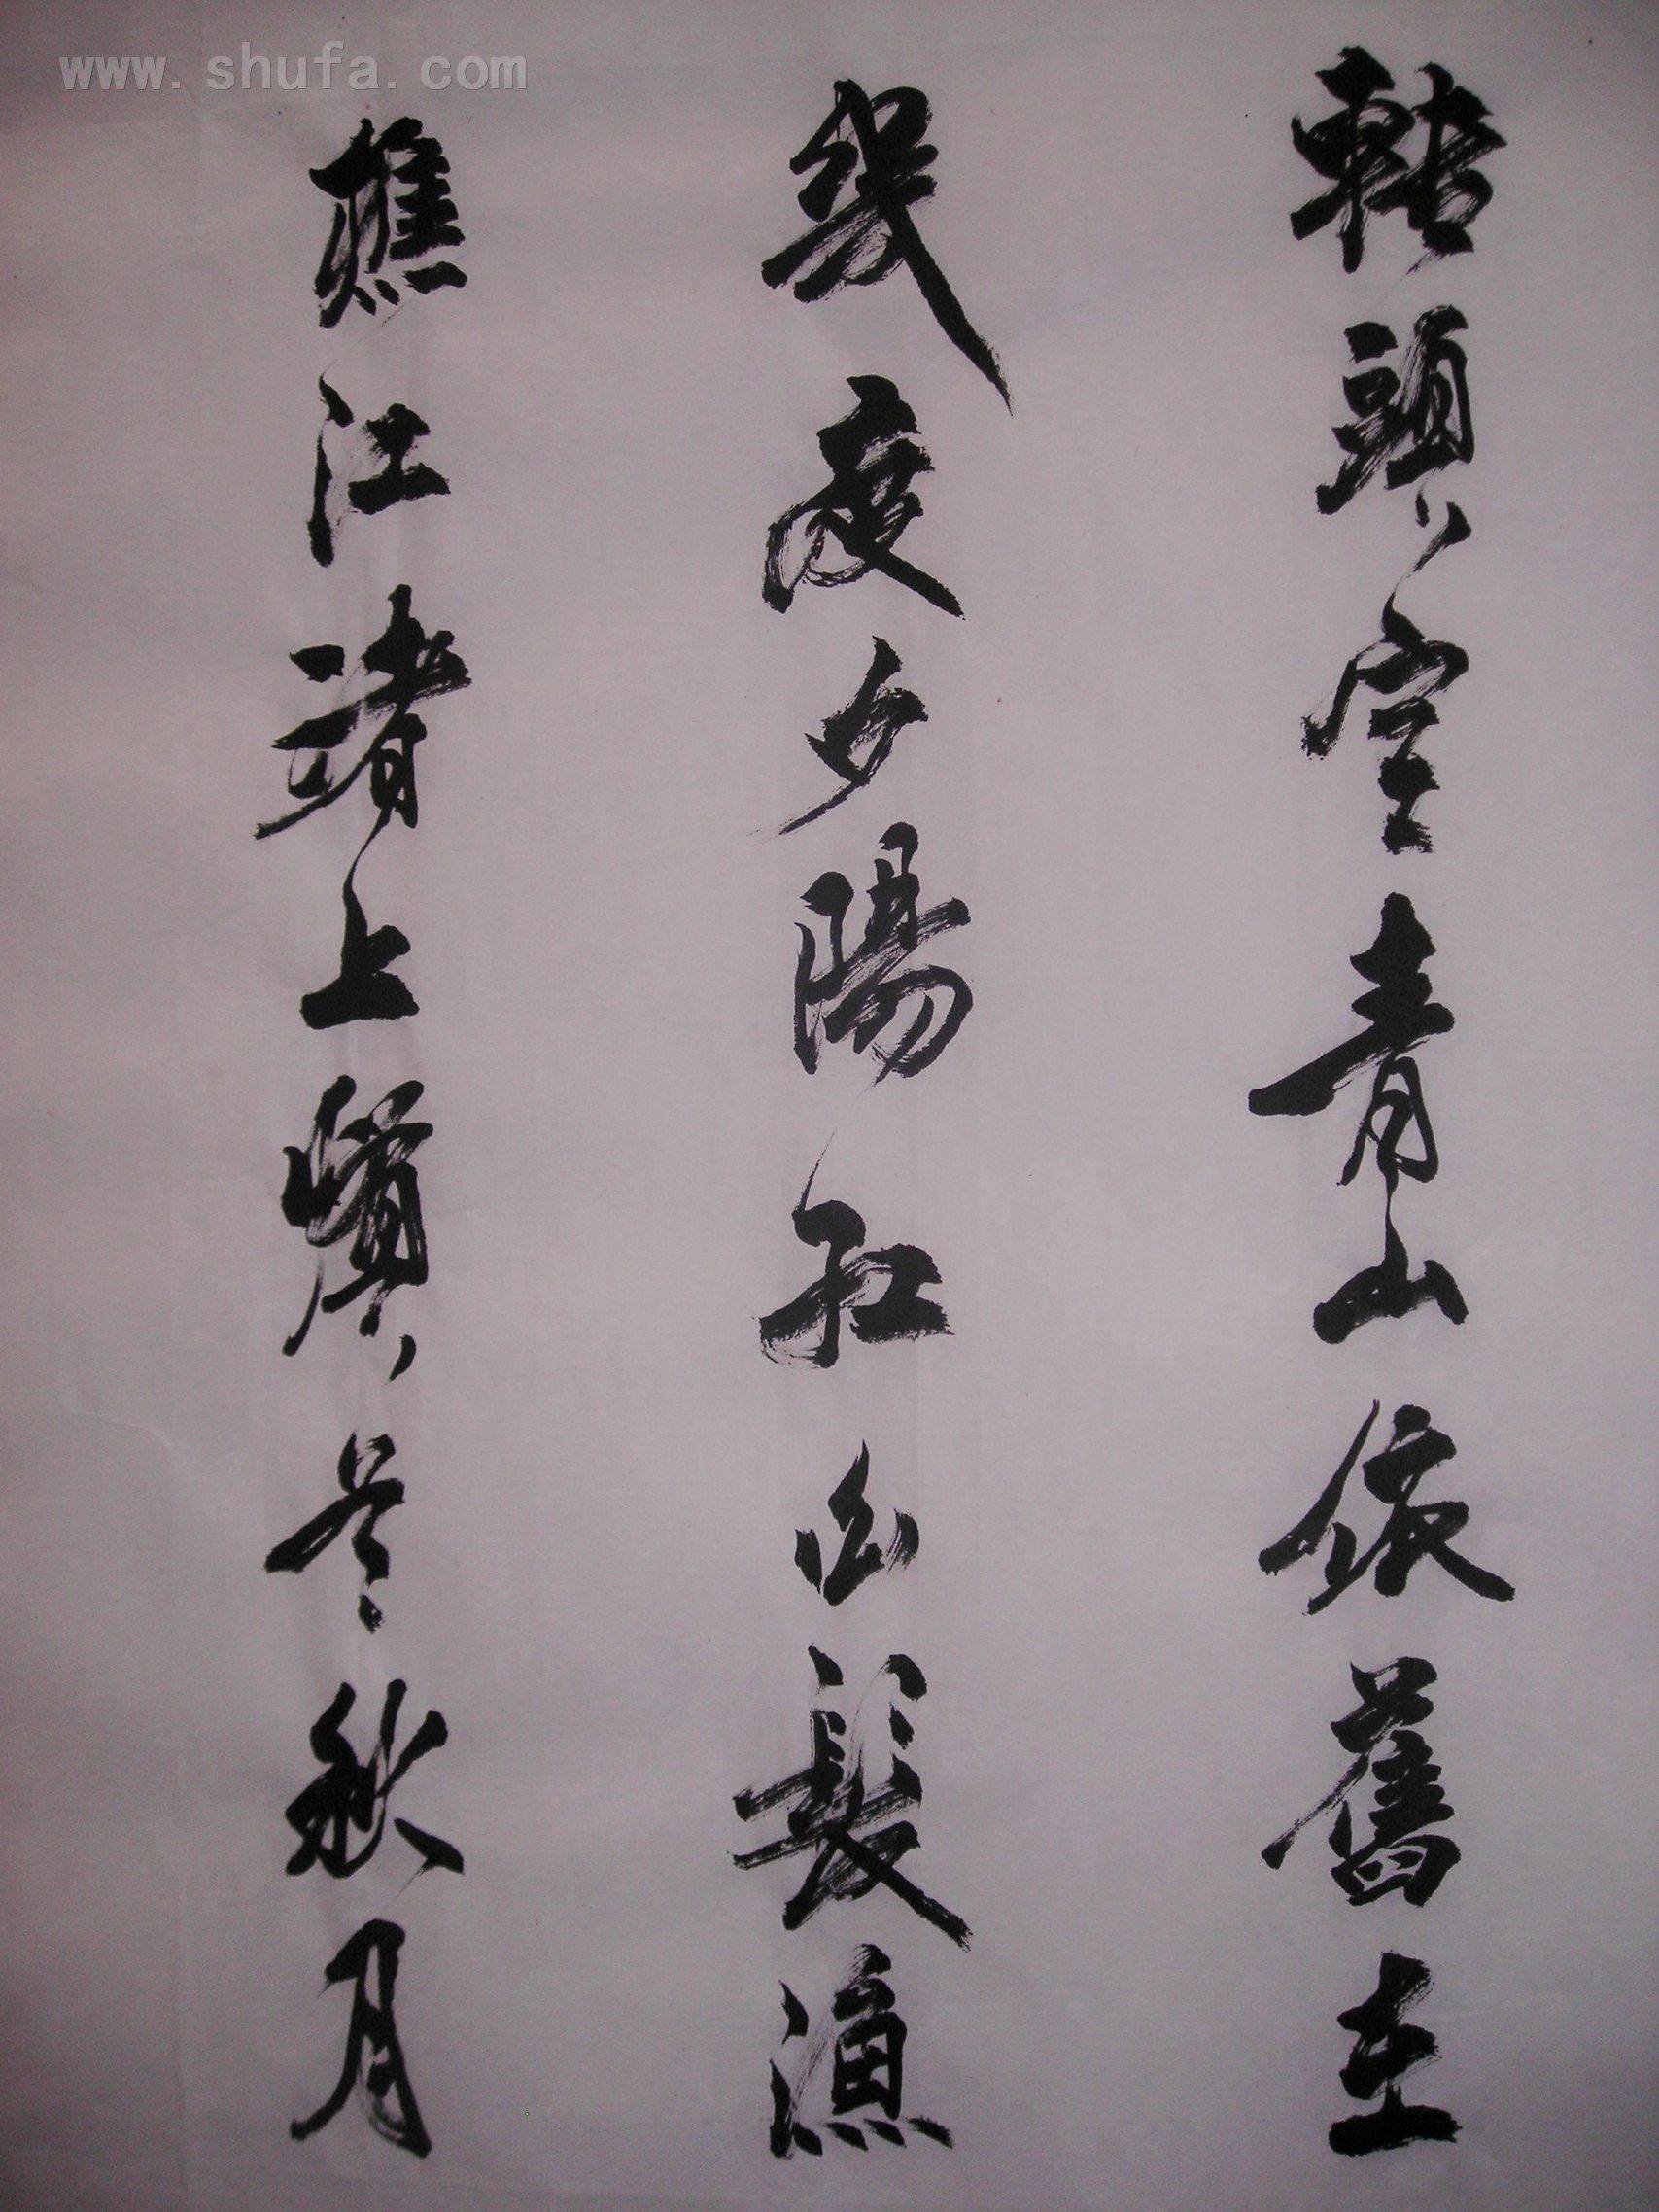 www.shufa.com
轉頭空青山依舊在
幾度夕陽紅白髮漁
樵江渚上慣看秋月